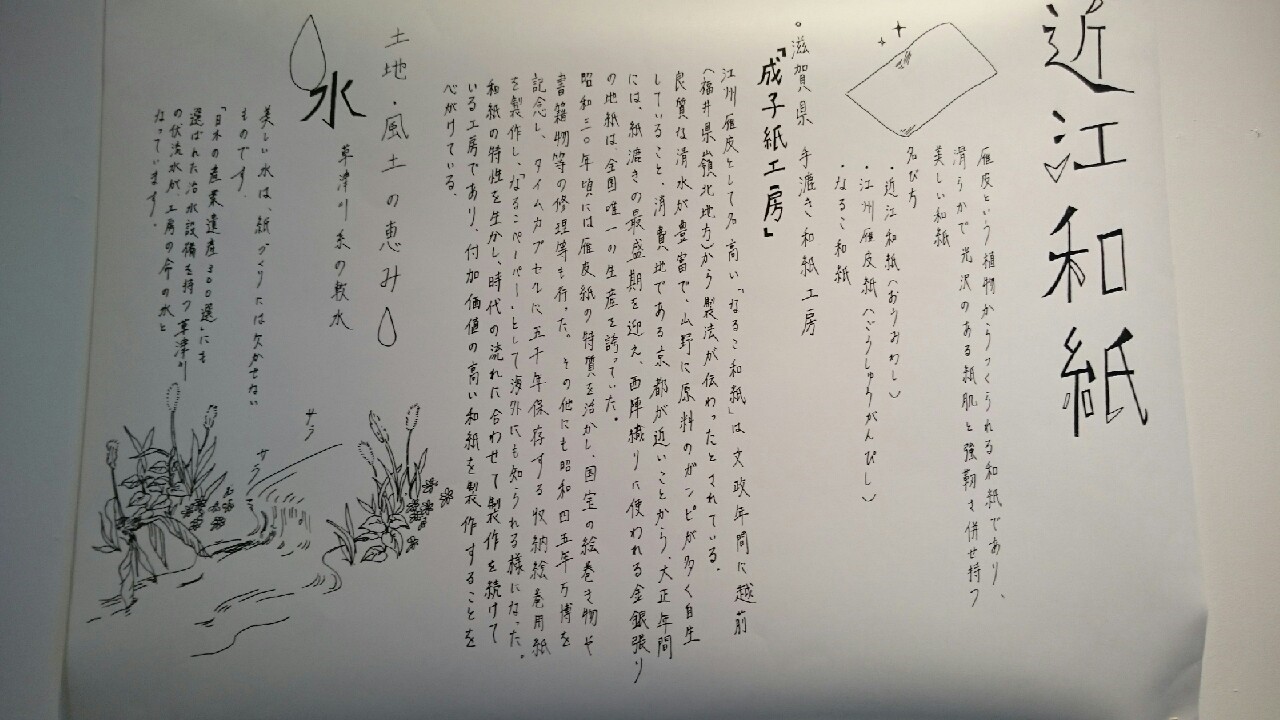 近江和紙
雁皮という植物からつくられる和紙であり、
滑らかで光沢のある紙肌と強靭さ併せ持つ
美しい和紙
名び方
・近江和紙（おうみわし）
・江州雁皮紙（ごうしゅうがんぴし）
・なるこ和紙
滋賀県 手漉き和紙工房
「成子紙工房」
江州雁皮として名高い「なるこ和紙」は文政年間に越前
（福井県嶺北地方）から製法が伝わったとされている。
良質な清水が豊富で、山野に原料のガンピが多く自生
していること、消費地である京都が近いことから、大正年間
には、紙漉きの最盛期を迎え、西陣織りに使われる金銀張り
の地紙は、全国唯一の生産を誇っていた。
昭和二〇年頃には雁皮紙の特質を活かし、国宝の絵巻き物や
書籍物等の修理等も行った。その他にも昭和四五年万博を
記念し、タイムカプセルに五千年保存する収納絵巻用紙
を製作し、「なるこペーパー」として海外にも知られる様になった。
和紙の特性を生かし、時代の流れに合わせて製作を続けて
いる工房であり、付加価値の高い和紙を製作することを
べがけている。
土地・風土の恵み
水
草津川系の軟水
美しい水は、紙づくりには欠かせない
ものです。
「日本の産業遺産300選」にも
選ばれた治水設備を持つ草津川
の伏流水が工房の命の水と
なっています。
サラ
サラ